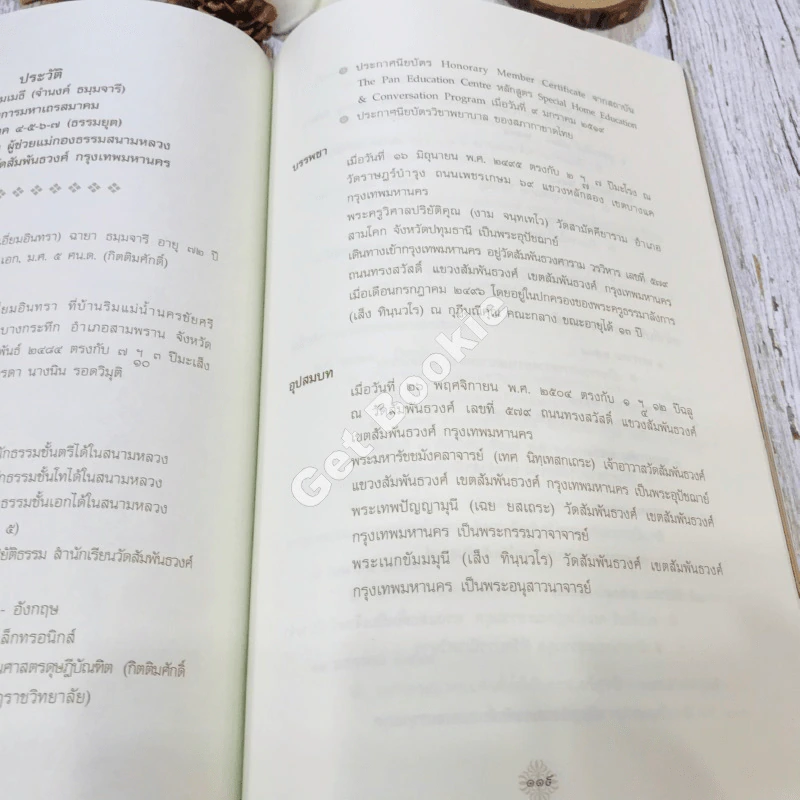 ประวัติ
มเมธี (จำนงค์ ธมฺมจารี)
การมหาเถรสมาคม
ค ๔-๕-๖-๗ (ธรรมยุต)
ผู้ช่วยแม่กองธรรมสนามหลวง
ดสัมพันธวงศ์ กรุงเทพมหานคร
เอี่ยมอินทรา) ฉายา ธมฺมจารี อายุ ๗๒ ปี
เอก, ม.ศ. ๕ ศน.ด. (กิตติมศักดิ์)
ยมอินทรา ที่บ้านริมแม่น้ำนครชัยศรี
บางกระทึก อำเภอสามพราน จังหวัด
พันธ์ ๒๔๘๔ ตรงกับ ๗ ฯ ๑๐ ๓ ปีมะเส็ง
รดา นางนิน รอดวิมุติ
ักธรรมชั้นตรีได้ในสนามหลวง
กธรรมชั้นโทได้ในสนามหลวง
ธรรมชั้นเอกได้ในสนามหลวง
๕)
ยัติธรรม สำนักเรียนวัดสัมพันธวงศ์
- อังกฤษ
ล็กทรอนิกส์
นศาสตรดุษฎีบัณฑิต (กิตติมศักดิ์
ฏราชวิทยาลัย)
ประกาศนียบัตร Honorary Member Certificate จากสถาบัน
The Pan Education Centre หลักสูตร Special Home Education
& Conversation Program เมื่อวันที่ ๙ มกราคม ๒๕๑๙
ประกาศนียบัตรวิชาพยาบาล ของสภากาชาดไทย
บรรพชา เมื่อวันที่ ๑๖ มิถุนายน พ.ศ. ๒๔๙๕ ตรงกับ ๒ ฯ ๗ ปีมะโรง ณ
วัดราษฎร์บำรุง ถนนเพชรเกษม ๖๙ แขวงหลักสอง เขตบางแค
กรุงเทพมหานคร
พระครูวิศาลปริยัติคุณ (งาม จนฺทเทโว) วัดสามัคคียาราม อำเภอ
สามโคก จังหวัดปทุมธานี เป็นพระอุปัชฌาย์
เดินทางเข้ากรุงเทพมหานคร อยู่วัดสัมพันธวงศาราม วรวิหาร เลขที่ ๕๗๙
ถนนทรงสวัสดิ์ แขวงสัมพันธวงศ์ เขตสัมพันธวงศ์ กรุงเทพมหานคร
เมื่อเดือนกรกฎาคม ๒๔๙๖ โดยอยู่ในปกครองของพระครูธรรมาลังการ
(เส็ง ทินฺนวโร) ณ กุฏีณีศุโข คณะกลาง ขณะอายุได้ ๑๓ ปี
อุปสมบท เมื่อวันที่ ๒๖ พฤศจิกายน พ.ศ. ๒๕๐๔ ตรงกับ ๑ ฯ ๔ ๑๒ ปีฉลู
ณ วัดสัมพันธวงศ์ เลขที่ ๕๗๙ ถนนทรงสวัสดิ์ แขวงสัมพันธวงศ์
เขตสัมพันธวงศ์ กรุงเทพมหานคร
พระมหารัชชมังคลาจารย์ (เทศ นิทฺเทสกเถระ) เจ้าอาวาสวัดสัมพันธวงศ์
แขวงสัมพันธวงศ์ เขตสัมพันธวงศ์ กรุงเทพมหานคร เป็นพระอุปัชฌาย์
พระเทพปัญญามุนี (เฉย ยสเถระ) วัดสัมพันธวงศ์ เขตสัมพันธวงศ์
กรุงเทพมหานคร เป็นพระกรรมวาจาจารย์
พระเนกขัมมมุนี (เส็ง ทินฺนวโร) วัดสัมพันธวงศ์ เขตสัมพันธวงศ์
กรุงเทพมหานคร เป็นพระอนุสาวนาจารย์
๑๑๕
Get Bookie